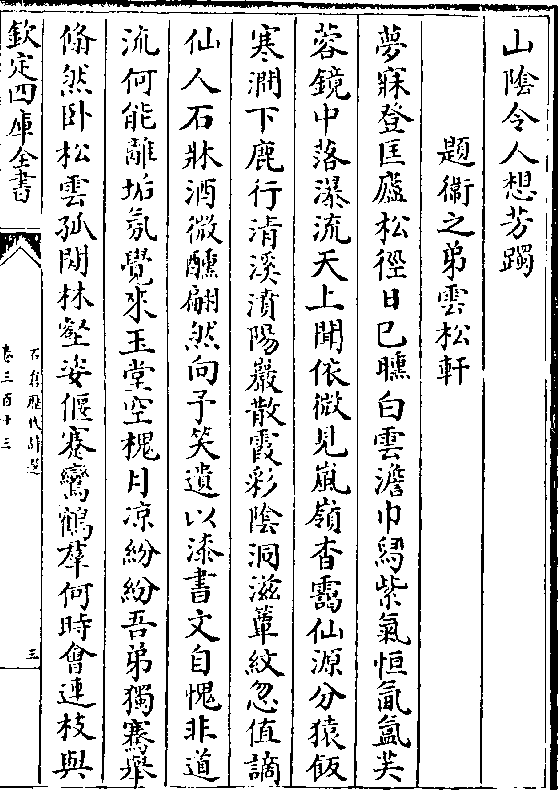 山陰令人想芳躅
題衞之弟雲松軒
夢寐登匡廬松徑日已曛白雲澹巾舄紫氣恒氤氲芙
蓉鏡中落瀑流天上聞依微見嵐嶺杳靄仙源分猿飯
寒澗下鹿行清溪濆陽巖散霞彩陰洞滋簟紋忽值謫
仙人石牀酒微醺翩然向予笑遺以漆書文自愧非道
流何能離垢氛覺來玉堂空槐月凉紛紛吾弟獨騫舉
翛然卧松雲孤閒林壑姿偃蹇鸞鶴羣何時會連枝與
欽定四庫全書
石倉歷代詩選
卷三百十三
三